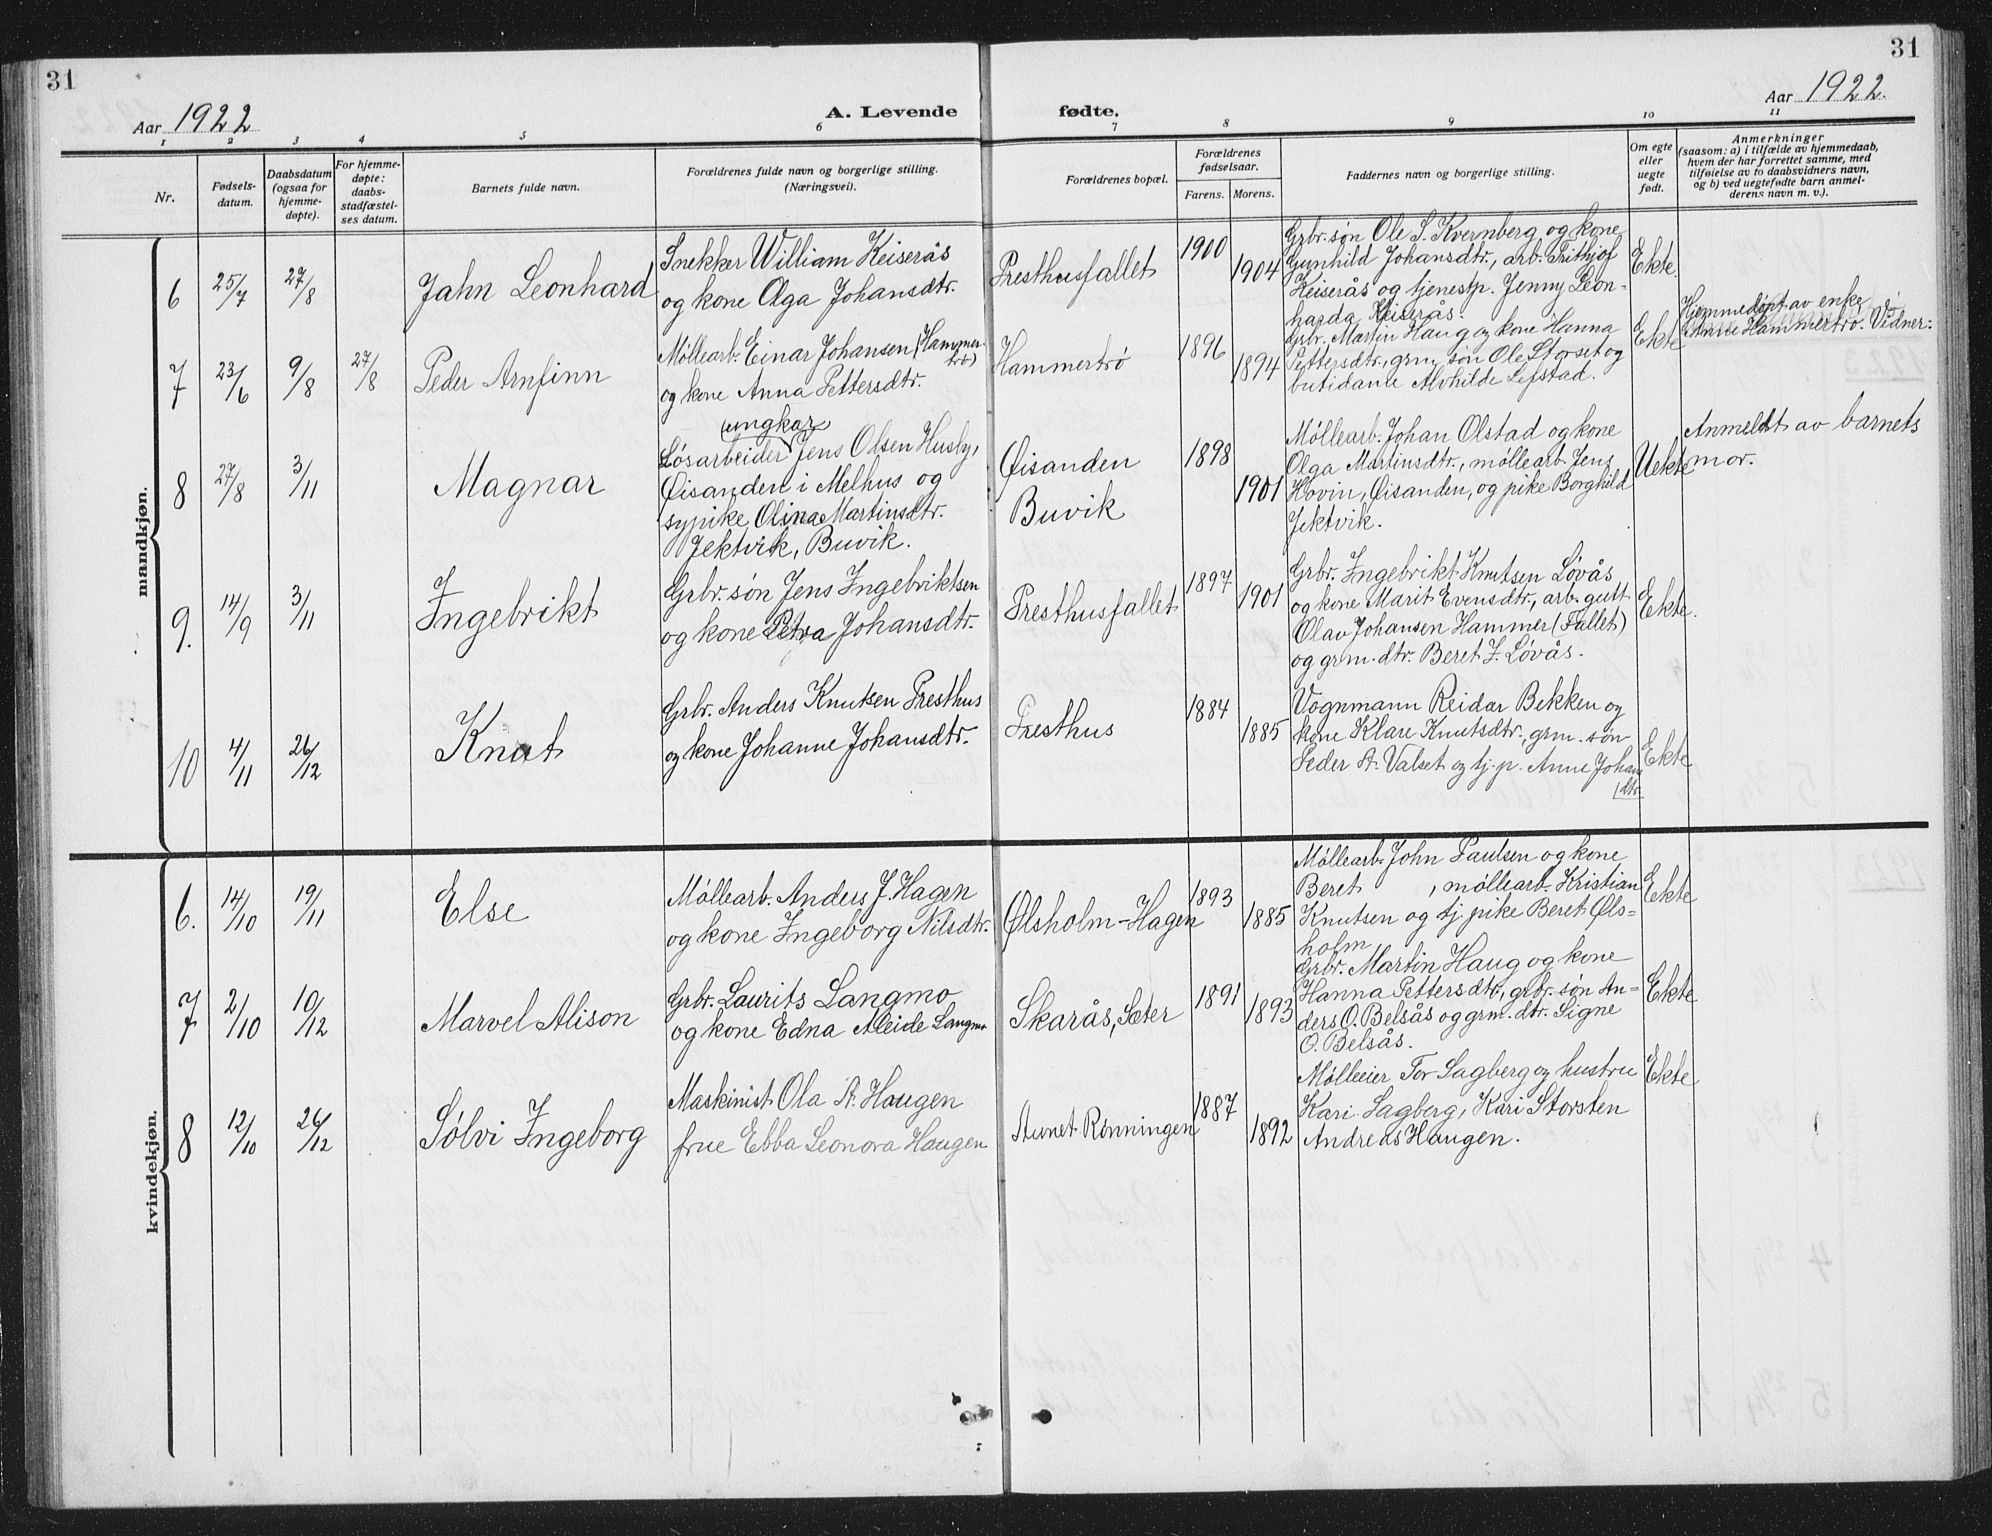 31
31
Aar 1922
A. Levende fødte.
Aar 1922.
1 2 3 4 5 6 7 8 9 10 11
Nr.
Fødsels-
datum.
Daabsdatum
(ogsaa for
hjemme-
døpte).
For hjemme-
døpte:
daabs-
stadfæstel-
ses datum.
Barnets fulde navn.
Forældrenes fulde navn og borgerlige stilling.
(Næringsvei).
Forældrenes bopæl.
Forældrenes
fødselsaar.
Farens. Morens.
Faddernes navn og borgerlige stilling.
Om egte
eller
uegte
født.
Anmerkninger
(saasom: a) i tilfælde av hjemmedaab,
hvem der har forrettet samme, med
tilføielse av to daabsvidners navn,
og b) ved uegtefødte barn anmel-
derens navn m. v.).
mandkjøn.
6
25/7
27/8
Jahn Leonhard
Snekker William Keiserås
og kone Olga Johansdtr.
Presthusfallet
1900
1904
Grbr. søn Ole S. Kvernberg og kone
Gunhild Johansdtr., arb. Frithjof
Keiserås og tjenestp. Jenny Leon-
harda Keiserås.
Ekte.
7
23/6
9/8
27/8
Peder Arnfinn
Møllearb. Einar Johansen (Hammer-
trø)
og kone Anna Pettersdtr.
Hammertrø
1896
1894
Grbr. Martin Haug og kone Hanna
Pettersdtr., grm. søn Ole Storset og
butidame Alvhilde Lefstad.
Ekte
Hjemmedøpt av enke
Hammertrø. Vidner:
8
27/8
3/11
Magnar
ungkar
Løsarbeider Jens Olsen Husby,
Øisanden i Melhus og
sypike Olina Martinsdtr.
Jektvik, Buvik.
Øisanden
Buvik
1898
1901
Møllearb. Johan Olstad og kone
Olga Martinsdtr., møllearb. Jens
Hovin, Øisanden, og pike Borghild
Jektvik.
Uekte
Anmeldt av barnets
mor.
9.
14/9
3/11
Ingebrikt
Grbr. søn Jens Ingebriktsen
og kone Petra Johansdtr.
Presthusfallet
1897
1901
Grbr. Ingebrikt Knutsen Løvås
og kone Marit Evensdtr., arb. gutt
Olav Johansen Hammer (Fallet)
og grm. dtr. Beret I. Løvås.
Ekte.
10
4/11
26/12
Knut
Grbr. Anders Knutsen Presthus
og kone Johanne Johansdtr.
Presthus
1884
1885
Vognmann Reidar Bekken og
kone Klare Knutsdtr., grm. søn
Peder A. Valset og tj. p. Anne Johans
dtr.
Ekte
kvindekjøn.
6.
14/10
19/11
Else
Møllearb. Anders J. Hagen
og kone Ingeborg Nilsdtr.
Ølsholm-Hagen
1893
1885
Møllearb. John Paulsen og kone
Beret , møllearb. Kristian
Knutsen og tj. pike Beret Øls-
holm
Ekte
7
2/10
10/12
Marvel Alison
Grbr. Laurits Langmo
og kone Edna Aleide Langmo
Skarås, Sæter
1891
1893
Grbr. Martin Haug og kone
Hanna Pettersdtr., grbr. søn An-
ders O. Belsås og grm. dtr. Signe
O. Belsås.
Ekte
8
12/10
26/12
Sølvi Ingeborg
Maskinist Ola A. Haugen
frue Ebba Leonora Haugen
Aunet-Rønningen
1887
1892
Mølleeier Tor Sagberg og hustru
Kari Sagberg, Kari Storsten
Andreas Haugen.
Ekte